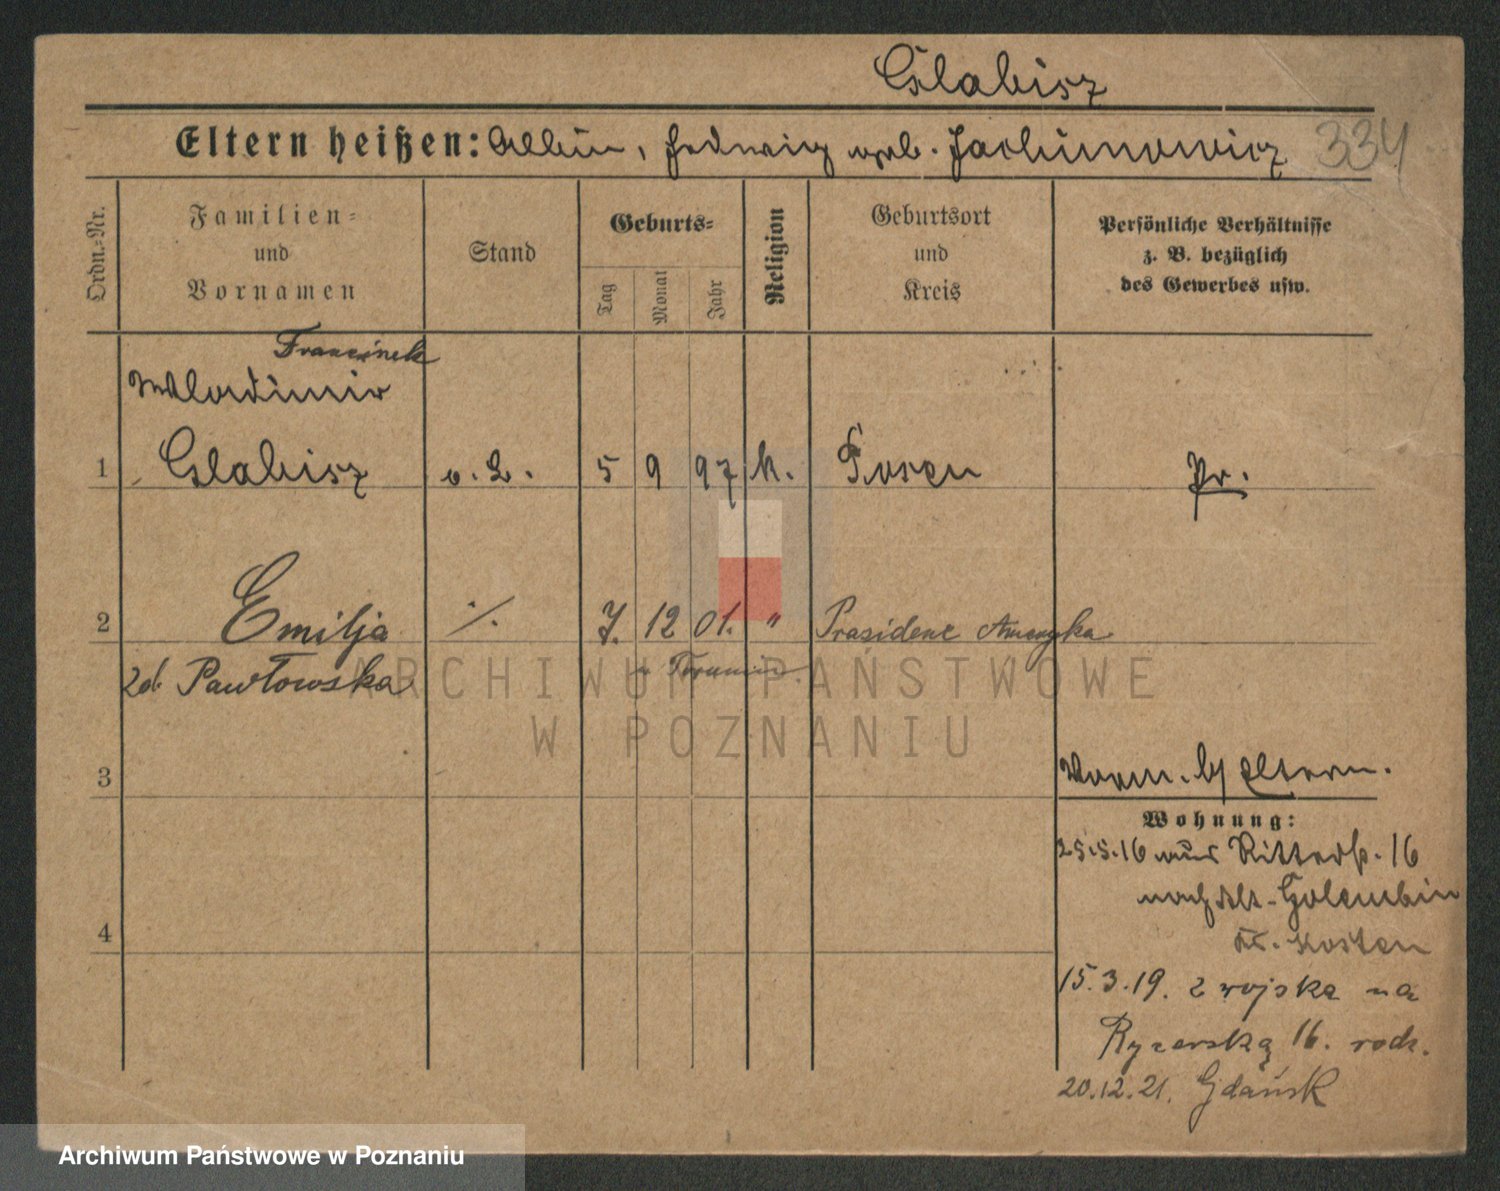 Glabisz
Eltern heißen: Albin, Hedwig geb. Jachimowicz 334
Ordn.=Nr.
Familien=
und
Vornamen
Stand
Geburts=
Tag
Monat
Jahr
Religion
Geburtsort
und
Kreis
Persönliche Verhältnisse
z. B. bezüglich
des Gewerbes usw.
Franciszek
Wladimir
1 Glabisz o. L. 5 9 97 k. Posen Pr.
2 Emilja ·/. 7. 12 01. " Ameryka
zd. Pawłowska w Toruniu
ARCHIWUM PAŃSTWOWE
W POZNANIU
3
Vorm. b/ Eltern.
Wohnung:
25.5.16 aus Ritterstr. 16
nach Alt-Golembin
Kr. Kosten
4
15.3.19. z wojska na
Rycerską 16. rodz.
20.12.21. Gdańsk
Archiwum Państwowe w Poznaniu